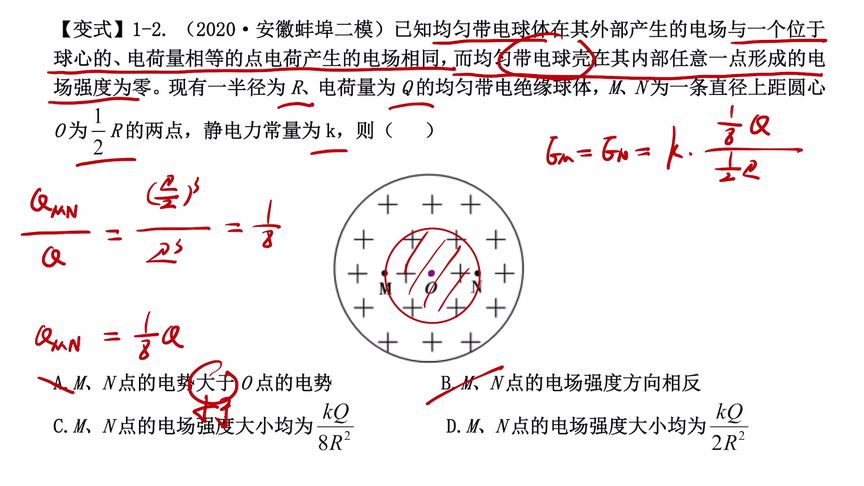 【变式】1-2. （2020·安徽蚌埠二模）已知均匀带电球体在其外部产生的电场与一个位于
球心的、电荷量相等的点电荷产生的电场相同，而均匀带电球壳在其内部任意一点形成的电
场强度为零。现有一半径为 R、电荷量为 Q 的均匀带电绝缘球体，M、N 为一条直径上距圆心
O 为 1/2 R 的两点，静电力常量为 k，则（ ）
E_M = E_N = k · (1/8 Q)/(1/2 R)
Q_MN/Q = (R/2)³/R³ = 1/8
M O N
Q_MN = 1/8 Q
A. M、N 点的电势大于 O 点的电势
B. M、N 点的电场强度方向相反
C. M、N 点的电场强度大小均为 kQ/8R²
D. M、N 点的电场强度大小均为 kQ/2R²